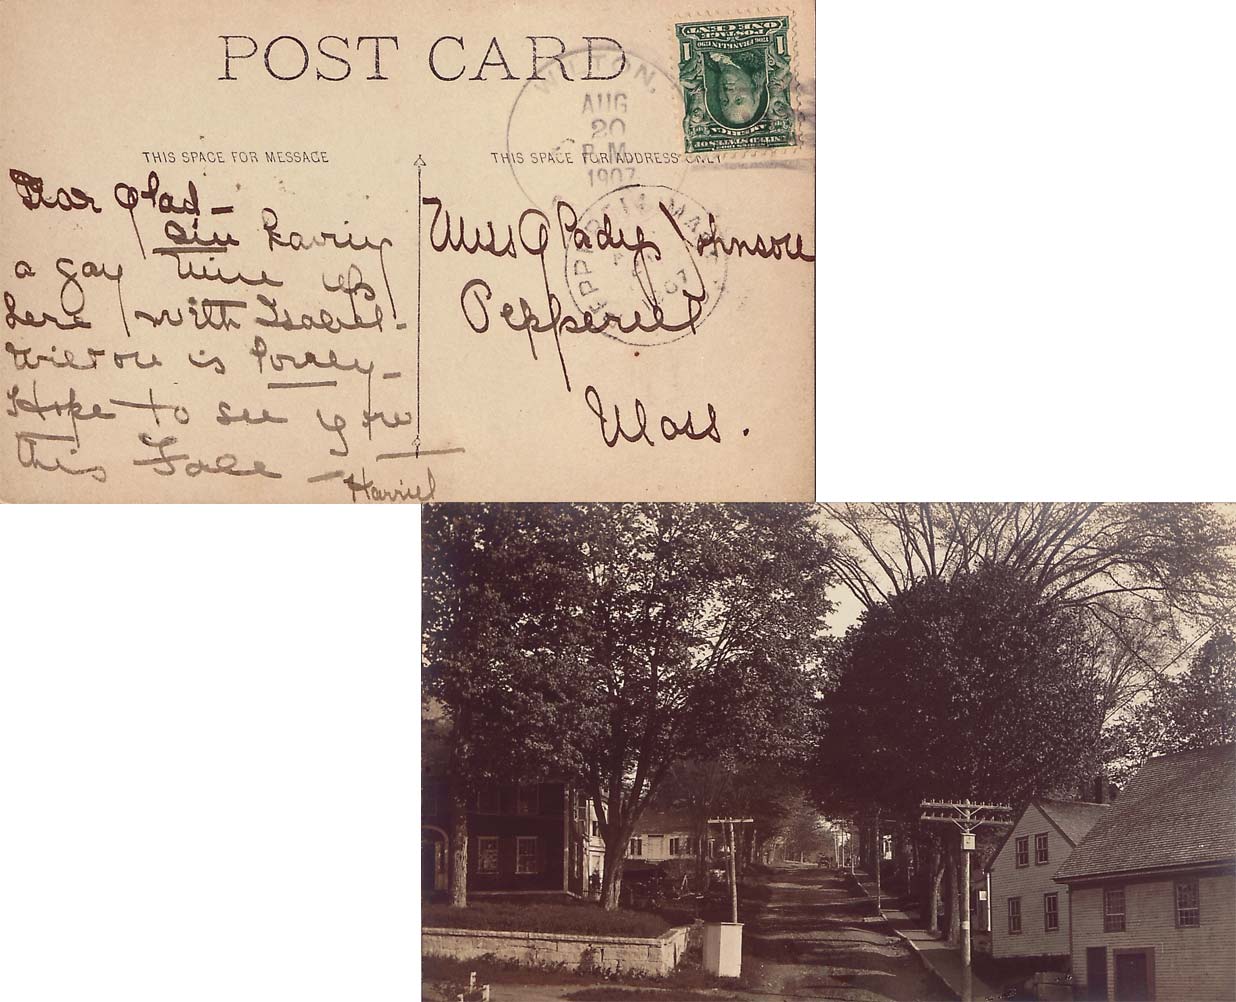 POST CARD
WILTON,
AUG
20
P.M.
1907
UNITED STATES OF
AMERICA
POSTAGE
ONE CENT
1 1
THIS SPACE FOR MESSAGE
THIS SPACE FOR ADDRESS ONLY
Dear Glad -
Am having
a gay time up
here with Isabel -
Wilton is lovely -
Hope to see you
this Fall -
Harriet
Miss Gladys Johnson
Pepperell
Mass.